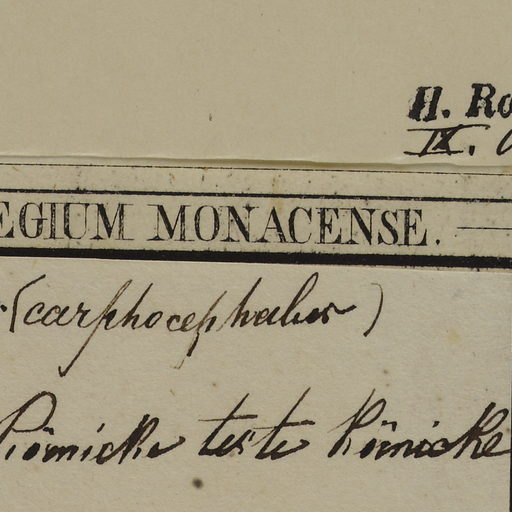 H. Ro
IX.
EGIUM MONACENSE.
(carphocephalus)
Körnicke teste Körnicke